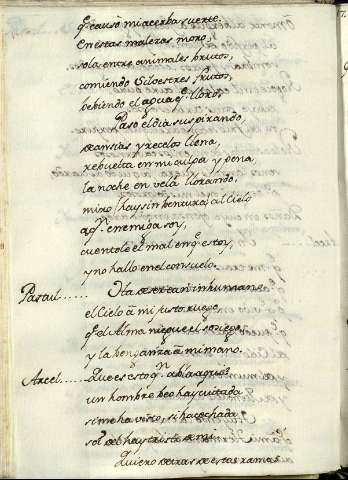 q̃ causo mi acerba suerte.
En estas malezas moro,
sola entre animales brutos,
comiendo siluestres frutos,
bebiendo el agua q̃ lloro.
Paso el dia suspirando
de ansias y recelos llena,
rebuelta en mi culpa y pena,
la noche en vela llorando,
miro, (hay sin ventura) al Cielo
a q.n enemiga soy,
cuentole el mal en q̃ estoy,
y no hallo en el consuelo.
Ha de ser tan inhumano
el Cielo à mi justo ruego,
q̃ el Alma niegue el sosiego,
y la benganza à mi mano.
Que es esto q.n abla aqui?
un hombre beo hay cuitada
si me ha visto, si
sol hay triste de mi
Quiero de estas ramas